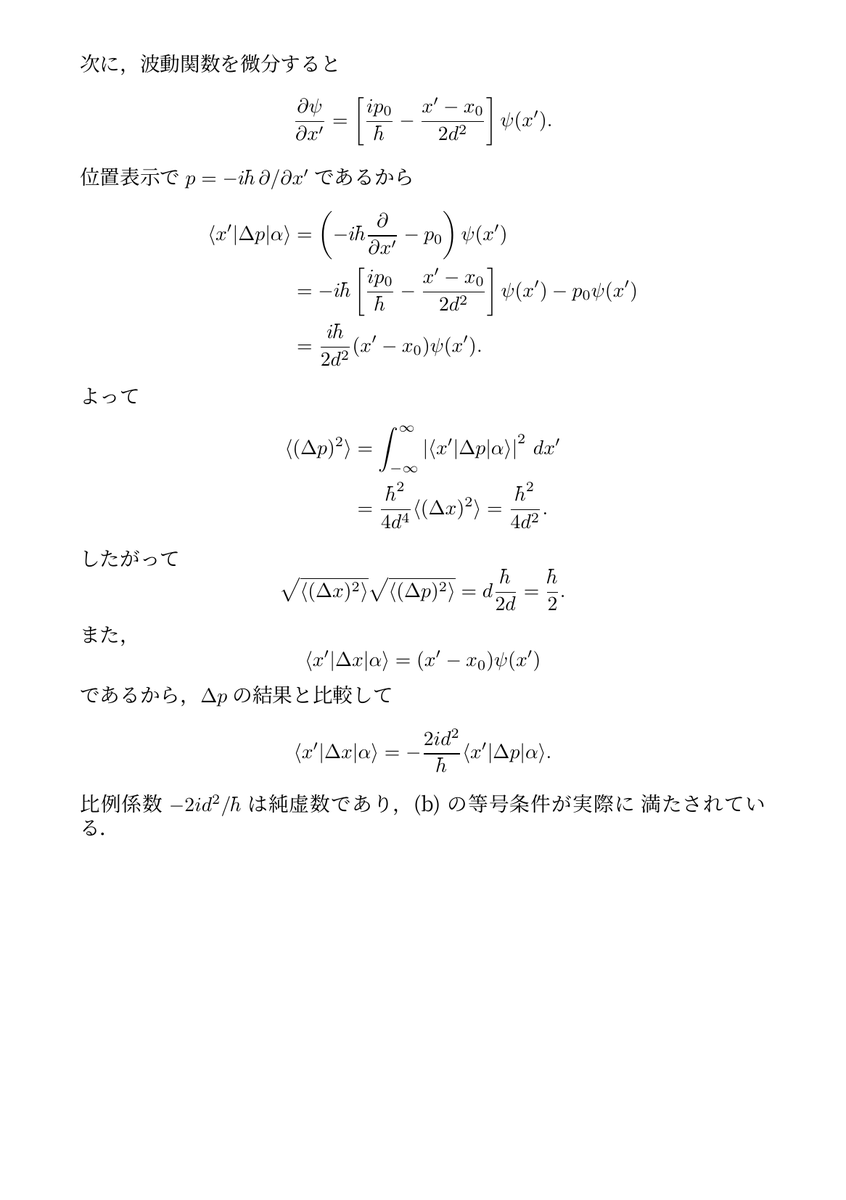 次に，波動関数を微分すると
∂ψ/∂x′ = [ip₀/ℏ − (x′ − x₀)/2d²] ψ(x′).
位置表示で p = −iℏ ∂/∂x′ であるから
⟨x′|Δp|α⟩ = (−iℏ ∂/∂x′ − p₀) ψ(x′)
= −iℏ [ip₀/ℏ − (x′ − x₀)/2d²] ψ(x′) − p₀ψ(x′)
= iℏ/2d² (x′ − x₀)ψ(x′).
よって
⟨(Δp)²⟩ = ∫_{−∞}^{∞} |⟨x′|Δp|α⟩|² dx′
= ℏ²/4d⁴ ⟨(Δx)²⟩ = ℏ²/4d².
したがって
√⟨(Δx)²⟩√⟨(Δp)²⟩ = d ℏ/2d = ℏ/2.
また，
⟨x′|Δx|α⟩ = (x′ − x₀)ψ(x′)
であるから，Δp の結果と比較して
⟨x′|Δx|α⟩ = − 2id²/ℏ ⟨x′|Δp|α⟩.
比例係数 −2id²/ℏ は純虚数であり，(b) の等号条件が実際に 満たされてい
る．